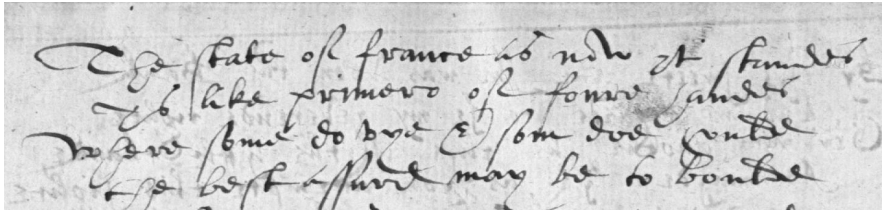 The state off france as now yt standes
Ys like primero off foure handes
Where some do vye & som doe houlde
the best assurd may be to boulde